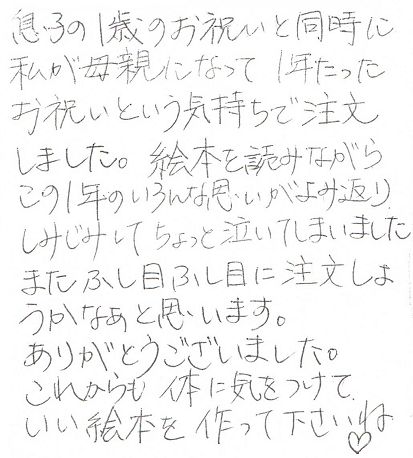 息子の1歳のお祝いと同時に
私が母親になって 1年たった
お祝いという気持ちで注文
しました。絵本を読みながら
この1年のいろんな思いがよみ返り
しみじみして ちょっと泣いてしまいました
またふし目ふし目に注文しよ
うかなぁと思います。
ありがとうございました。
これからも 体に気をつけて
いい絵本を 作って下さいね♡